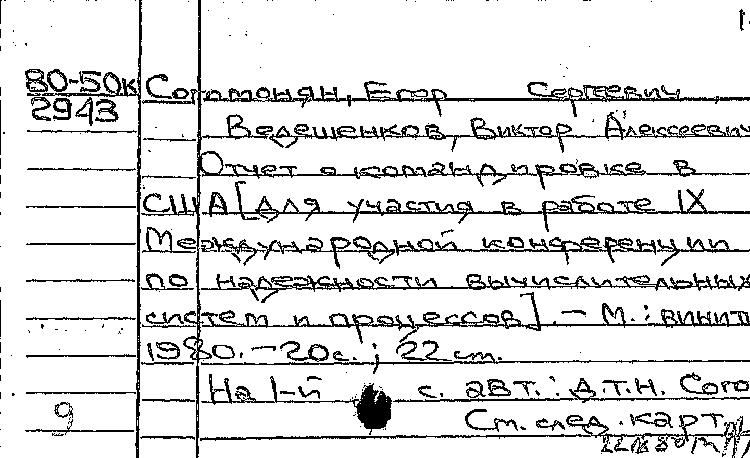 80-50к Согомонян, Егор Сергеевич,
2943 Ведешенков, Виктор Алексеевич
Отчет о командировке в
США [для участия в работе IX
Международной конференции
по надежности вычислительных
систем и процессов]. - М.: ВИНИТИ
1980. - 20с.; 22 см.
На 1-й с. авт.: д.т.н. Сого
9 См. след. карт.